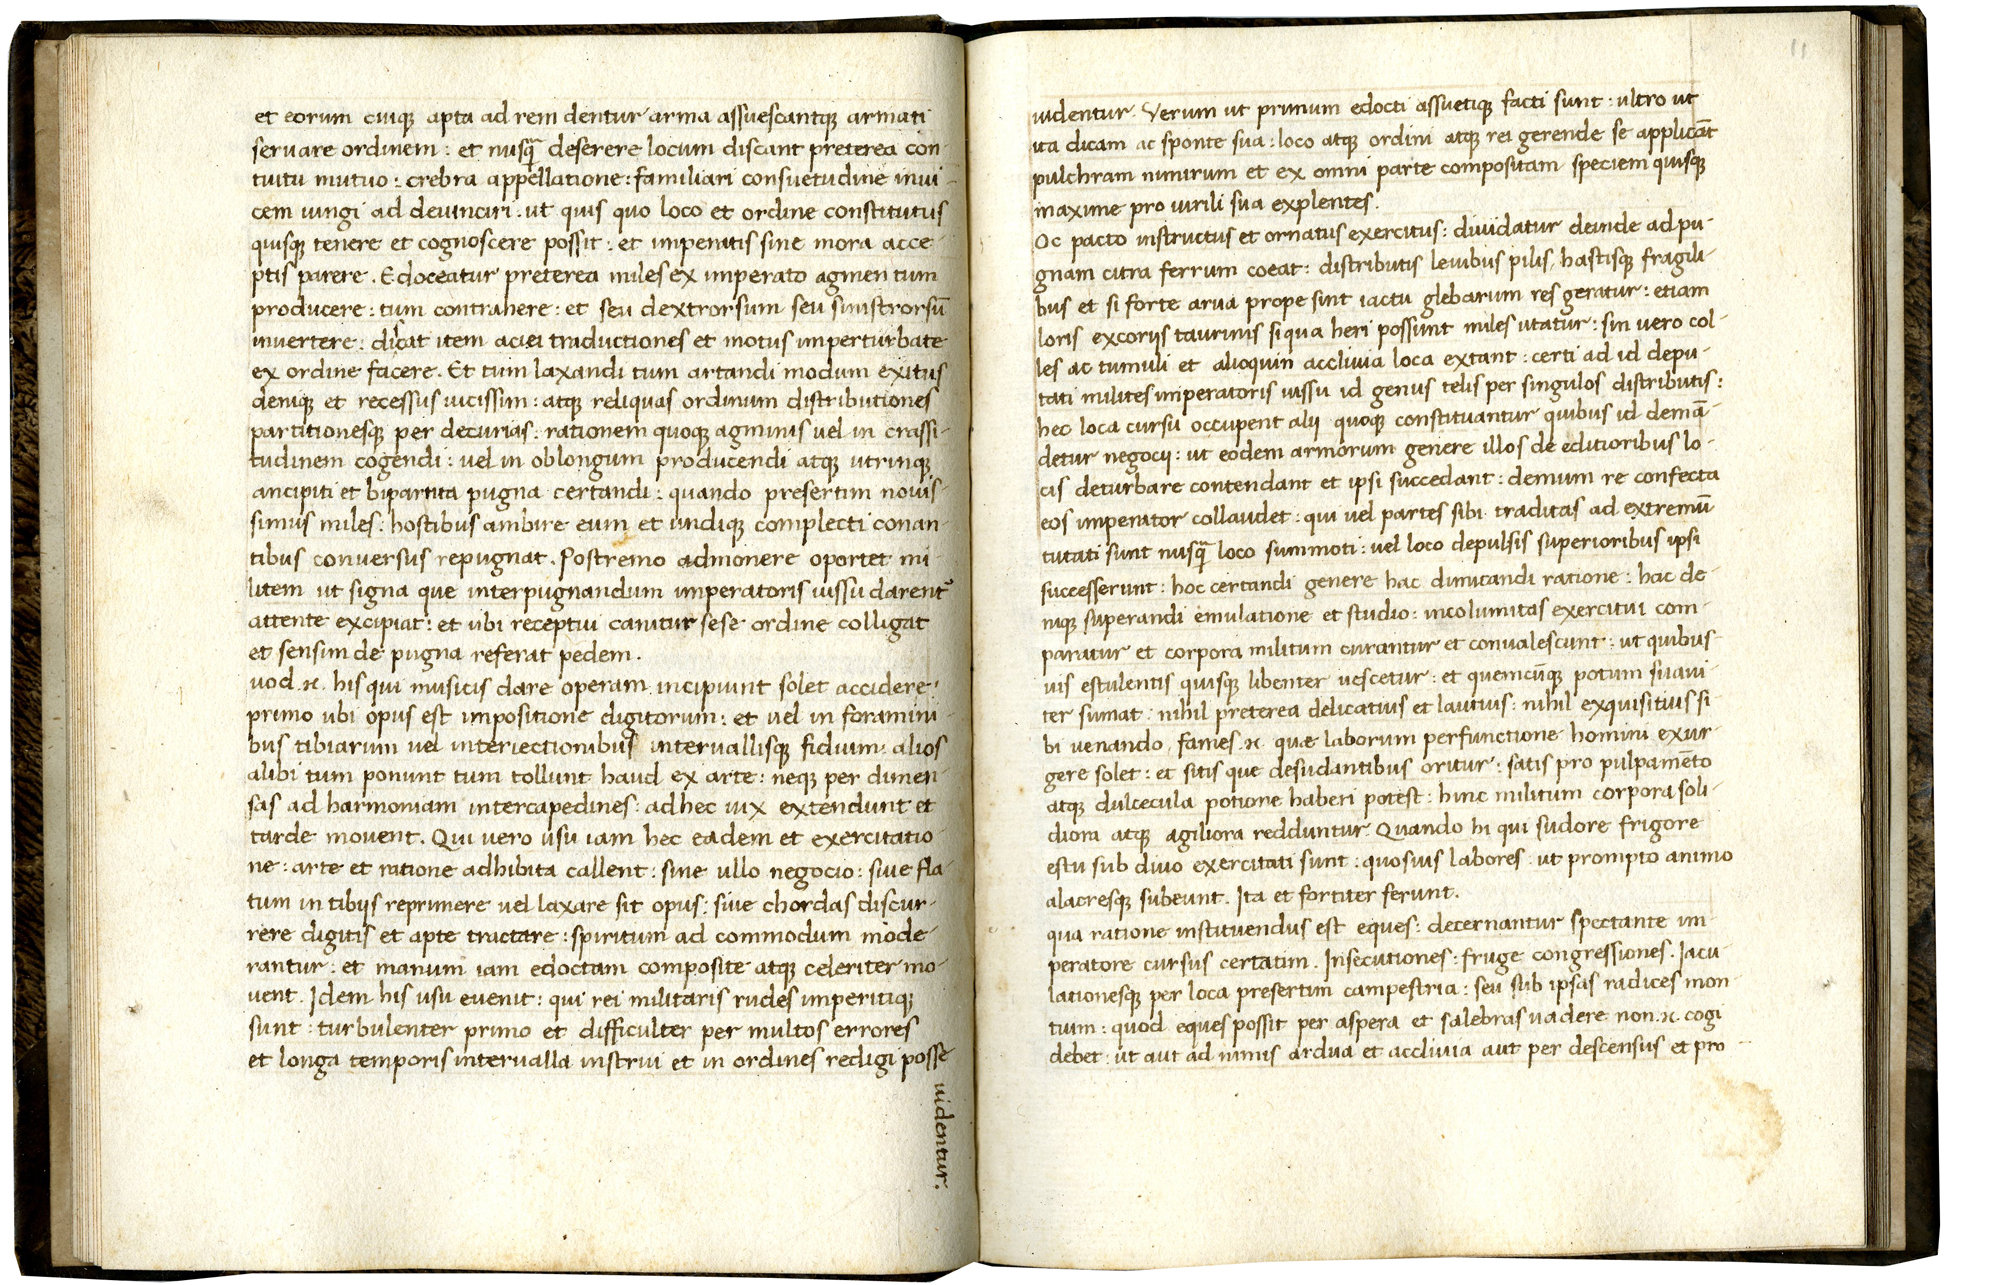 et eorum cuiqꝫ apta ad rem dentur arma assuescantqꝫ armati
seruare ordinem : et nusq̄ deserere locum discant preterea con-
tuitu mutuo : crebra appellatione : familiari consuetudine inui-
cem iungi ad deuinciri . ut quis quo loco et ordine constitutus
quisqꝫ tenere et cognoscere possit : et imperatis sine mora acce-
ptis parere . Edoceatur preterea miles ex imperato agmen tum
producere : tum contrahere : et seu dextrorsum seu sinistrorsū
inuertere : discat item aciei traductiones et motus imperturbate
ex ordine facere . Et tum laxandi tum artandi modum exitus
deniqꝫ et recessus uicissim : atqꝫ reliquas ordinum distributiones
partitionesqꝫ per decurias : rationem quoqꝫ agminis uel in crassi-
tudinem cogendi : uel in oblongum producendi atqꝫ utrinqꝫ
ancipiti et bipartita pugna certandi : quando presertim nouis-
simus miles : hostibus ambire eum et undiqꝫ complecti conan-
tibus conuersus repugnat . Postremo admonere oportet mi-
litem ut signa que interpugnandum imperatoris iussu darent᷑
attente excipiat : et ubi receptui canitur sese ordine colligat
et sensim de pugna referat pedem .
uod .n. his qui musicis dare operam incipiunt solet accidere :
primo ubi opus est impositione digitorum : et uel in foramini-
bus tibiarum uel interiectionibus interuallisqꝫ fidium : alios
alibi tum ponunt tum tollunt haud ex arte : neqꝫ per dimen-
sas ad harmoniam intercapedines : ad hec uix extendunt et
tarde mouent . Qui uero usu iam hec eadem et exercitatio-
ne : arte et ratione adhibita callent : sine ullo negocio : siue fla-
tum in tibijs reprimere uel laxare sit opus : siue chordas discur-
rere digitis et apte tractare : spiritum ad commodum mode-
rantur : et manum iam edoctam composite atqꝫ celeriter mo-
uent . Idem his usu euenit : qui rei militaris rudes imperitiqꝫ
sunt : turbulenter primo et difficulter per multos errores
et longa temporis interualla instrui et in ordines redigi posse
uidentur .
11
uidentur . Verum ut primum edocti assuetiqꝫ facti sunt : ultro ut
ita dicam ac sponte sua : loco atqꝫ ordini atqꝫ rei gerende se applicāt
pulchram nimirum et ex omni parte compositam speciem quisqꝫ
maxime pro uirili sua explentes .
Oc pacto instructus et ornatus exercitus : diuidatur deinde ad pu-
gnam citra ferrum coeat : distributis leuibus pilis , hastisqꝫ fragili-
bus et si forte arua prope sint iactu glebarum res geratur : etiam
loris excorijs taurinis siqua heri possunt miles utatur : sin uero col-
les ac tumuli et alioquin accliuia loca extant : certi ad id depu-
tati milites imperatoris iussu id genus telis per singulos distributis :
hec loca cursu occupent alij quoqꝫ constituantur quibus id demā-
detur negocij : ut eodem armorum genere illos de editioribus lo-
cis deturbare contendant et ipsi succedant : demum re confecta
eos imperator collaudet : qui uel partes sibi traditas ad extremū
tutati sunt nusq̄ loco summoti : uel loco depulsis superioribus ipsi
successerunt : hoc certandi genere hac dimicandi ratione : hac de-
niqꝫ superandi emulatione et studio : incolumitas exercitui com-
paratur et corpora militum curantur et conualescunt : ut quibus-
uis estulentis quisqꝫ libenter uescetur : et quemcūqꝫ potum suaui-
ter sumat : nihil preterea delicatius et lautius : nihil exquisitius si-
bi uenando , fames .n. quae laborum perfunctione homini exur-
gere solet : et sitis que desudantibus oritur : satis pro pulpamēto
atqꝫ dulcecula potione haberi potest : hinc militum corpora soli-
diora atqꝫ agiliora redduntur Quando hi qui sudore frigore
estu sub diuo exercitati sunt : quosuis labores : ut prompto animo
alacresqꝫ subeunt . Ita et fortiter ferunt .
qua ratione instituendus est eques : decernantur spectante im-
peratore cursus certatim . Insecutiones : fruge congressiones . Iacu
lationesqꝫ per loca presertim campestria : seu sub ipsas radices mon-
tium : quod eques possit per aspera et salebras uadere non .n. cogi
debet : ut aut ad nimis ardua et accliuia aut per descensus et pro-